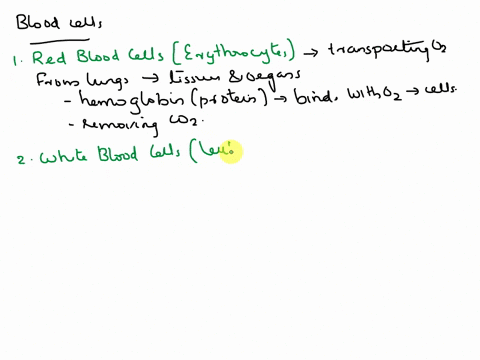 Blood cells
1. Red Blood Cells (Erythrocytes) → transporting O2
From lungs → tissues & organs
- hemoglobin (protein) → binds with O2 → cells.
- removing CO2.
2. White Blood Cells (leu